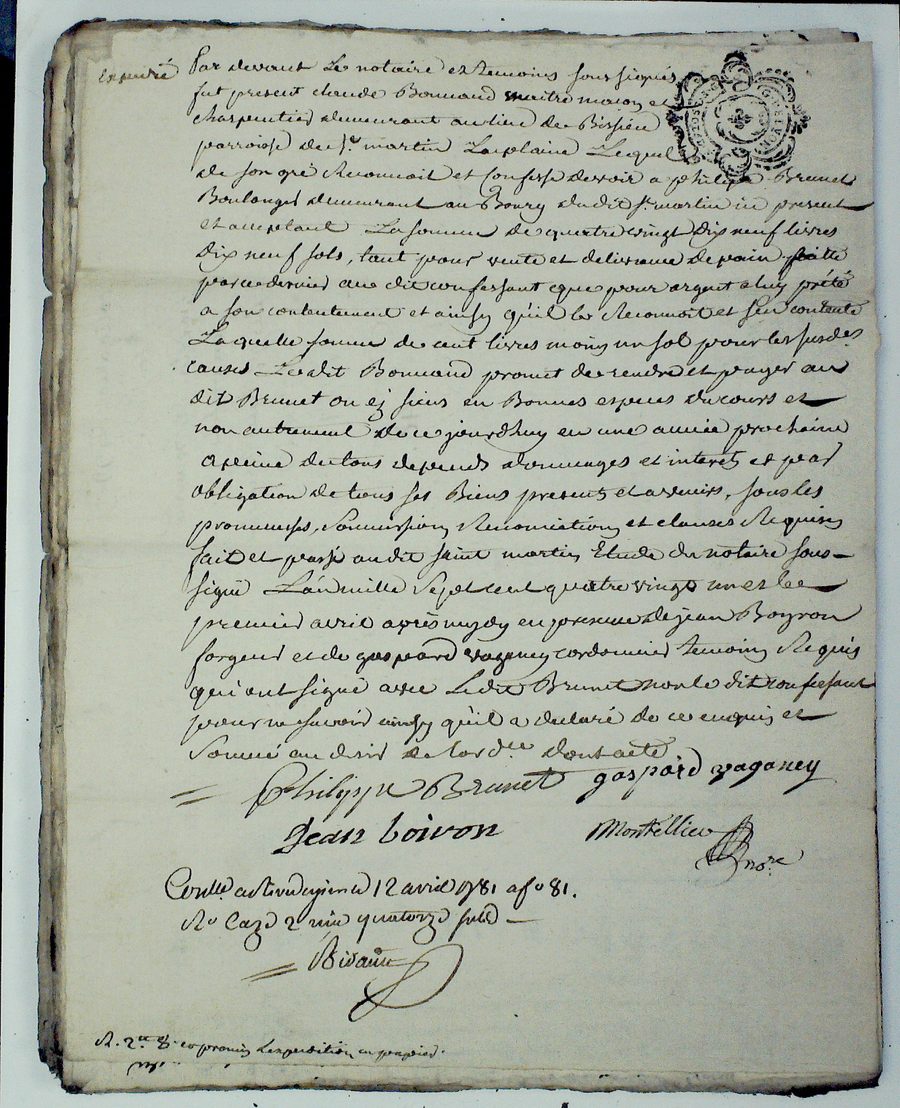 Expedié
Par devant Le notaire et temoins soussignés
fut present claude Bonnand maitre macon et
charpentier demeurant au lieu de Bissieu
parroisse de st martin Laplaine Lequel
de son gré Reconnait et Confesse devoir a philipe Brunet
Boulanger demeurant au Bourg du dit st martin icy present
et acceptant La somme de quatre vingt dix neuf livres
dix neuf sols, tant pour vente et delivrance de pain faitte
par ce dernier au dit confessant que pour argent a luy prété
a son contentement et ainsy qu'il le Reconnoit et s'en contente
Laquelle somme de cent livres moins un sol pour les susdes
causes Ledit Bonnand promet de rendre et payer au
dit Brunet ou ej siens en Bonnes especes du cours et
non autrement de ce jourdhuy en une année prochaine
a peine de tous depends dommages et interets et par
obligation de tous ses Biens presents et avenirs, sous les
promesses, Soumission, Renonciations et clauses Requises
fait et passé audit saint martin Etude du notaire sous-
signé L'an mille sept cent quatre vingt un et le
premier avril après mydy en presence de jean Boyron
forgeur et de gaspard vaganey cordonnier temoins Requis
qui ont signé avec Ledit Brunet non le dit confessant
pour ne savoir ainsy qu'il a declaré de ce enquis et
Sommé au desir de lordce dont acte
Philippe Brunet gaspard vaganey
Jean boivon Montellier nore
Conllé a Rivedegier le 12 avril 1781 a fo 81.
Ro Case 2 quatorze sols
R. 2 expedition en papier.